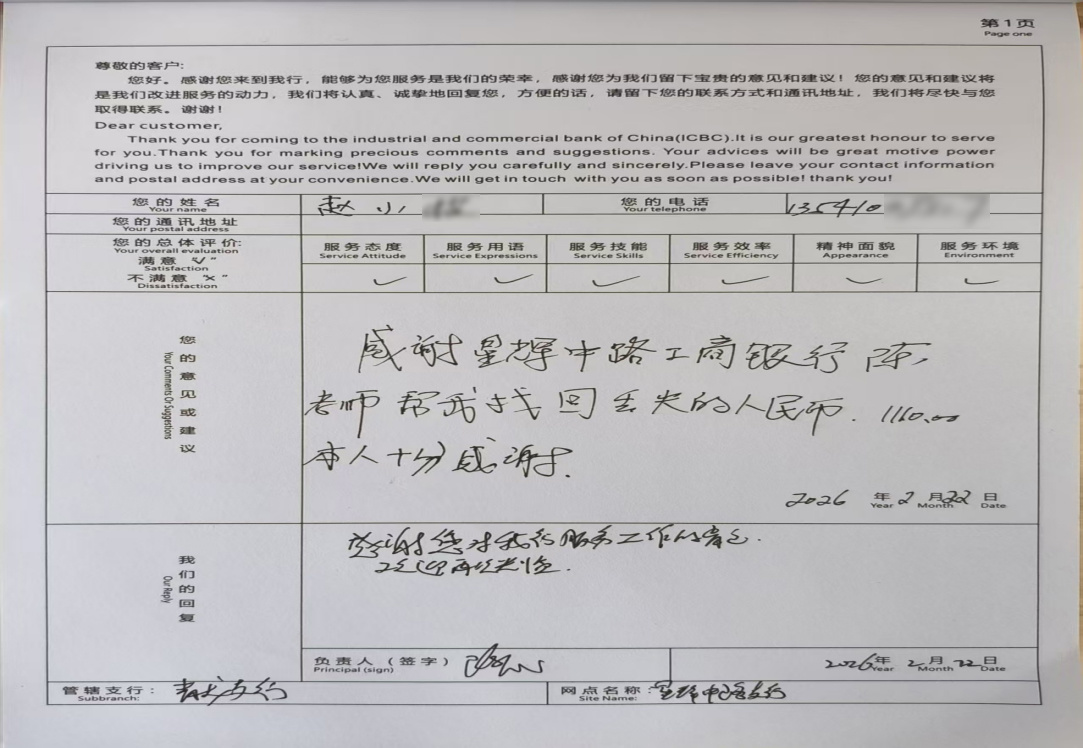 第1页
Page one
尊敬的客户:
您好。感谢您来到我行，能够为您服务是我们的荣幸，感谢您为我们留下宝贵的意见和建议！您的意见和建议将
是我们改进服务的动力，我们将认真、诚挚地回复您，方便的话，请留下您的联系方式和通讯地址，我们将尽快与您
取得联系。谢谢！
Dear customer,
Thank you for coming to the industrial and commercial bank of China(ICBC).It is our greatest honour to serve
for you.Thank you for marking precious comments and suggestions. Your advices will be great motive power
driving us to improve our service!We will reply you carefully and sincerely.Please leave your contact information
and postal address at your convenience.We will get in touch with you as soon as possible! thank you!
您的姓名 赵小 您的电话 135410
Your name Your telephone
您的通讯地址
Your postal address
您的总体评价: 服务态度 服务用语 服务技能 服务效率 精神面貌 服务环境
Your overall evaluation Service Attitude Service Expressions Service Skills Service Efficiency Appearance Environment
满意 "√"
Satisfaction
不满意 "×" ✓ ✓ ✓ ✓ ✓ ✓
Dissatisfaction
您的意见或建议
Your Comments Or Suggestions
感谢星辉中路工商银行陈
老师帮我找回丢失的人民币.1160.00
本人十分感谢.
2026年2月22日
Year Month Date
我们的回复
Our Reply
感谢您对我行服务工作的肯定.
欢迎再次光临.
负责人（签字） 2026年2月22日
Principal (sign) Year Month Date
管辖支行: 网点名称: 星辉中路支行
Subbranch: Site Name: